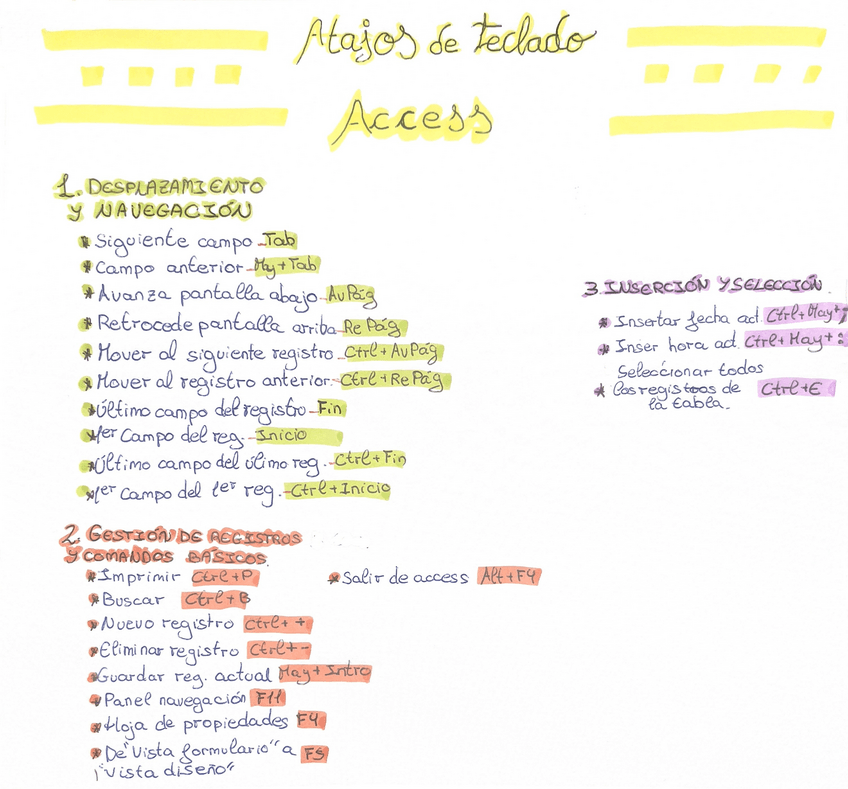 Atajos de teclado
Access
1. DESPLAZAMIENTO
Y NAVEGACIÓN
* Siguiente campo - Tab
* Campo anterior - My + Tab
* Avanza pantalla abajo - AvPág
* Retrocede pantalla arriba - Re Pág
* Mover al siguiente registro - Ctrl + AvPág
* Mover al registro anterior - Ctrl + RePág
* Último campo del registro - Fin
* 1er Campo del reg. - Inicio
* Último campo del úlimo reg. - Ctrl + Fin
* 1er Campo del 1er reg. - Ctrl + Inicio
2. GESTIÓN DE REGISTROS
Y COMANDOS BÁSICOS.
* Imprimir Ctrl + P
* Buscar Ctrl + B
* Nuevo registro Ctrl + +
* Eliminar registro Ctrl + -
* Guardar reg. actual May + Intro
* Panel navegación F11
* Hoja de propiedades F4
* De "Vista formulario" a F5
"Vista diseño"
* Salir de access Alt + F4
3. INSERCIÓN Y SELECCIÓN.
* Insertar fecha act. Ctrl + May + ;
* Inser hora ad. Ctrl + May + :
Seleccionar todos
* los registros de Ctrl + E
la tabla.